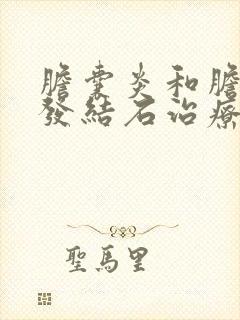 膽囊炎和膽
發結石治療
聖馬里